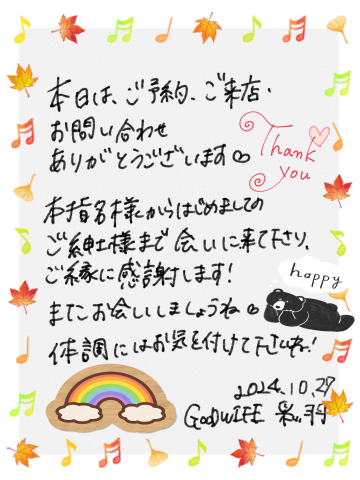 本日は、ご予約、ご来店、
お問い合わせ
ありがとうございます
Thank
you
本指名様からはじめましての
ご紳士様まで会いに来て下さり、
ご縁に感謝します!
またお会いしましょうね
happy
体調にはお気を付けて下さいね!
2024.10.27
GOODWIFE